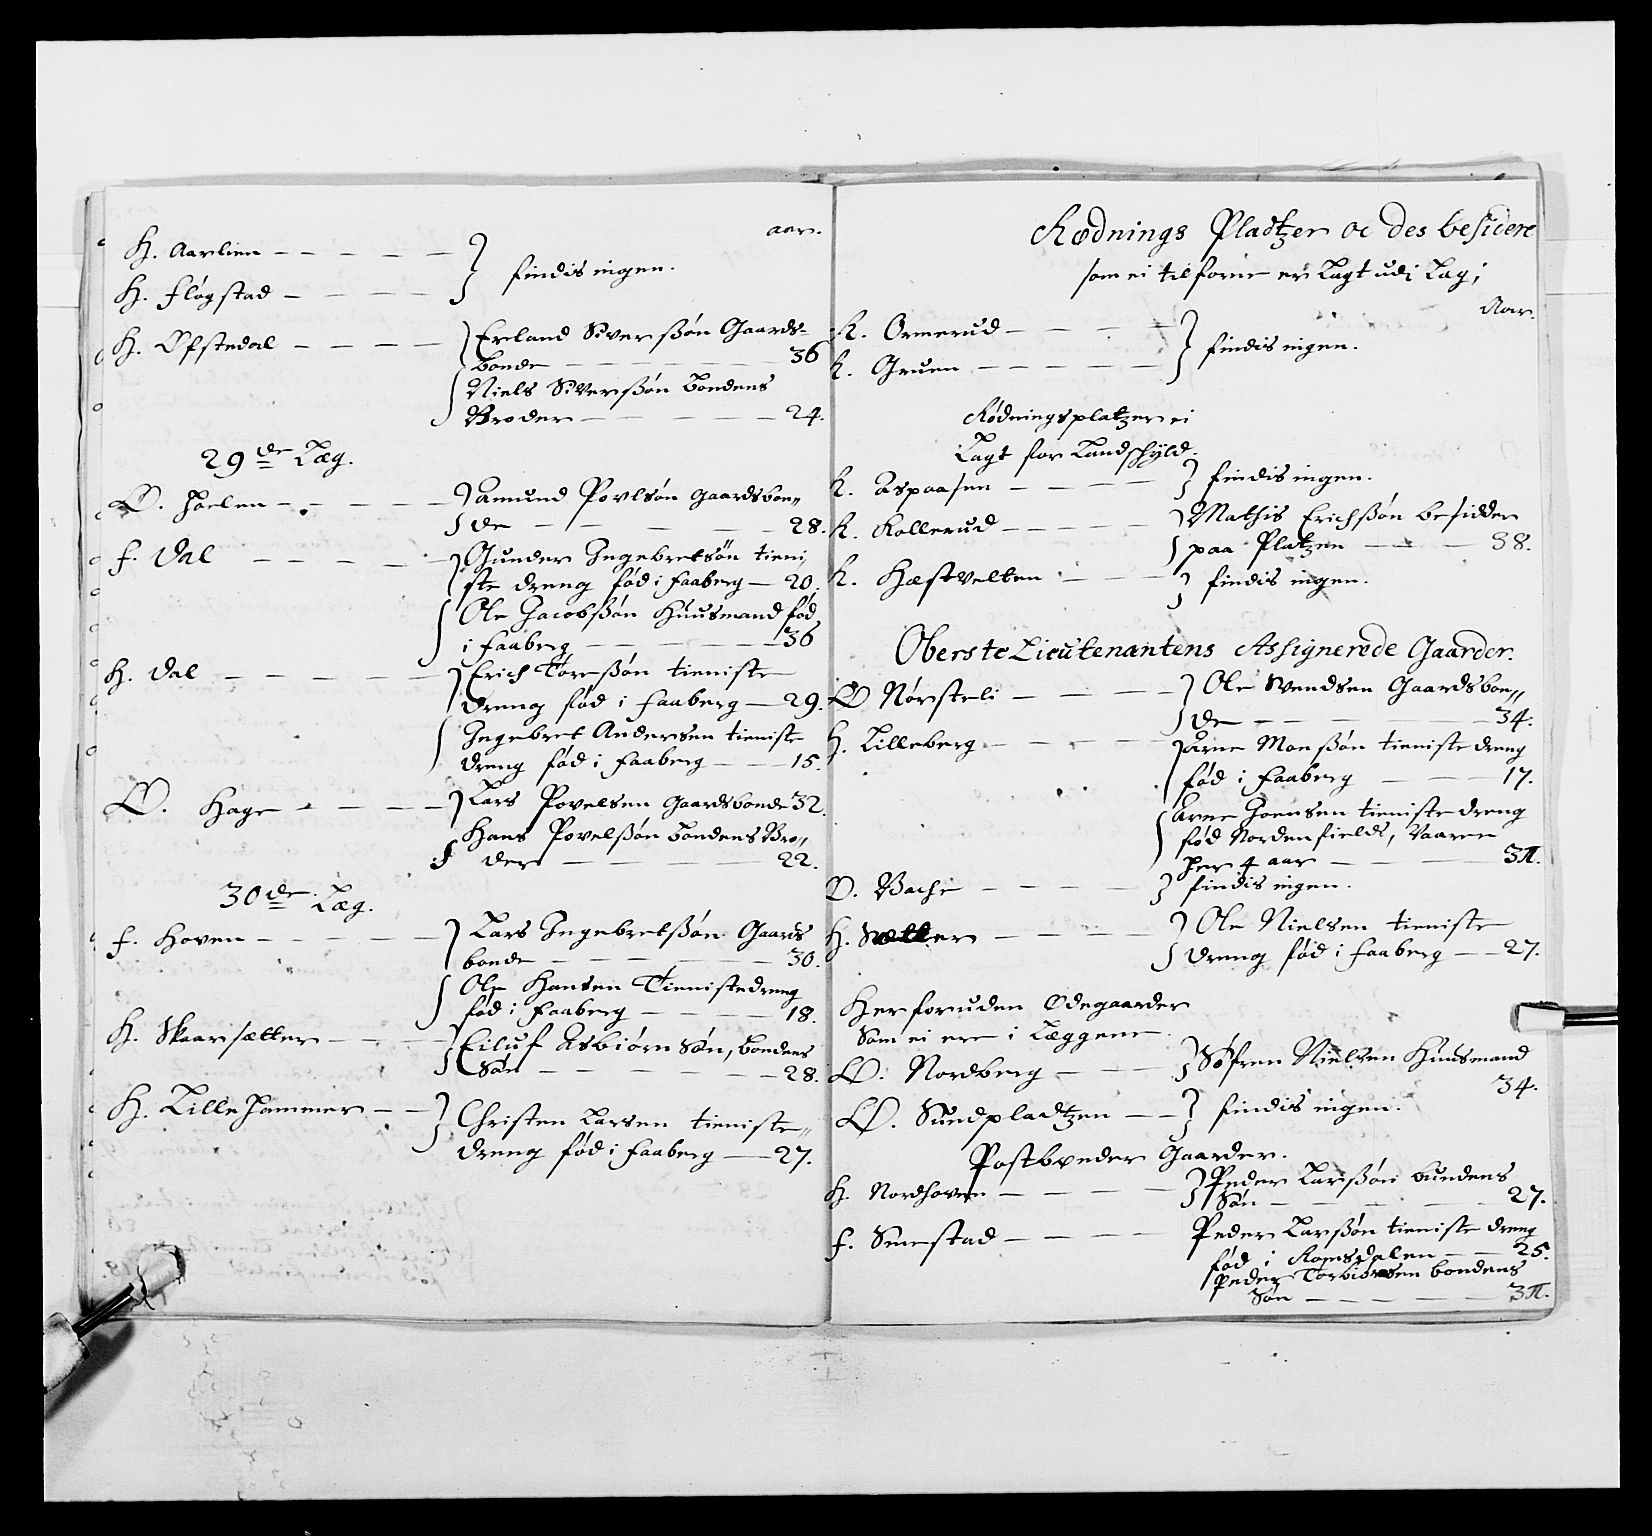 aar.
H. Aarlien — — — — —
findis ingen.
H. Fløgstad — — — —
H. Ofstedal — — — — Erland Siverssøn Gaards-
bonde — — — — — 36
Niels Siverssøn bondens
Broder — — — — — 24.
29de Læg.
O. Hoelen — — — — — Amund Povlsøn gaardsbon„
de — — — — — 28.
F. Dal — — — — — Gunder Ingebretsøn tieni„
ste dreng fød i faaberg — 20.
Ole Jacobssøn Huusmand fød
i faaberg — — — — — 36
H. Dal — — — — — Erich Toressøn tieniste
dreng fød i faaberg — 29.
Ingebret Andersen tieniste
dreng fød i faaberg — — — 15.
O. Hage — — — — Lars Povelsen gaardsbonde 32.
Hans Povelssøn bondens Bro„
der — — — — — 22.
30de Læg.
F. Hoven — — — — — Lars Ingebretssøn Gaards
bonde — — — — — 30.
Ole Hansen Tienistedreng
fød i faaberg — — — — 18.
H. Skaarsætter — — — — Eiluf Asbiørn Søn, bondens
Søn — — — — — 28.
H. Lillehammer — — Christen Larsen tieniste„
dreng fød i faaberg — 27.
Rødnings Pladtzer oc des besidere
som ei tilforne er Lagt udi Læg;
Aar.
R. Ormerud — — — —
findis ingen.
R. Gruen — — — — —
Rødningsplatzer ei
Lagt for Landschyld.
R. Aspaasen — — — — findis ingen.
R. Rollerud — — — — Mathis Erichssøn besidder
paa Platzen — — — 38.
R. Hæstvelten — — findis ingen.
Oberste Lieutenantens Assignerede Gaarder.
O Nørsteli — — — — Ole Svendsen Gaardsbon„
de — — — — 34.
H. Lilleberg — — — — Arne Monssøn tieniste dreng
fød i faaberg — — — 17.
Arne Joensen tieniste dreng
fød Nordenfields, Vaaren
her 4 aar — — — — 3π.
O. Bache — — — — findis ingen.
H. Sætter — — — — Ole Nielsen tieniste
dreng fød i faaberg — — 27.
Her foruden Ødegaarder
Som ei ere i Læggene
O. Nordberg — — — Søfren Nielsen Huusmand
34.
O. Sundpladtzen — — findis ingen.
Postbønder Gaarder.
H. Nordhoven — — — — Peder Larssøn bundens
Søn — — — — — 27.
F. Smestad — — — — Peder Larssøn tieniste dreng
fød i Romsdalen — — 25.
Peder Torbiørnsen bondens
Søn — — — — — 3π.